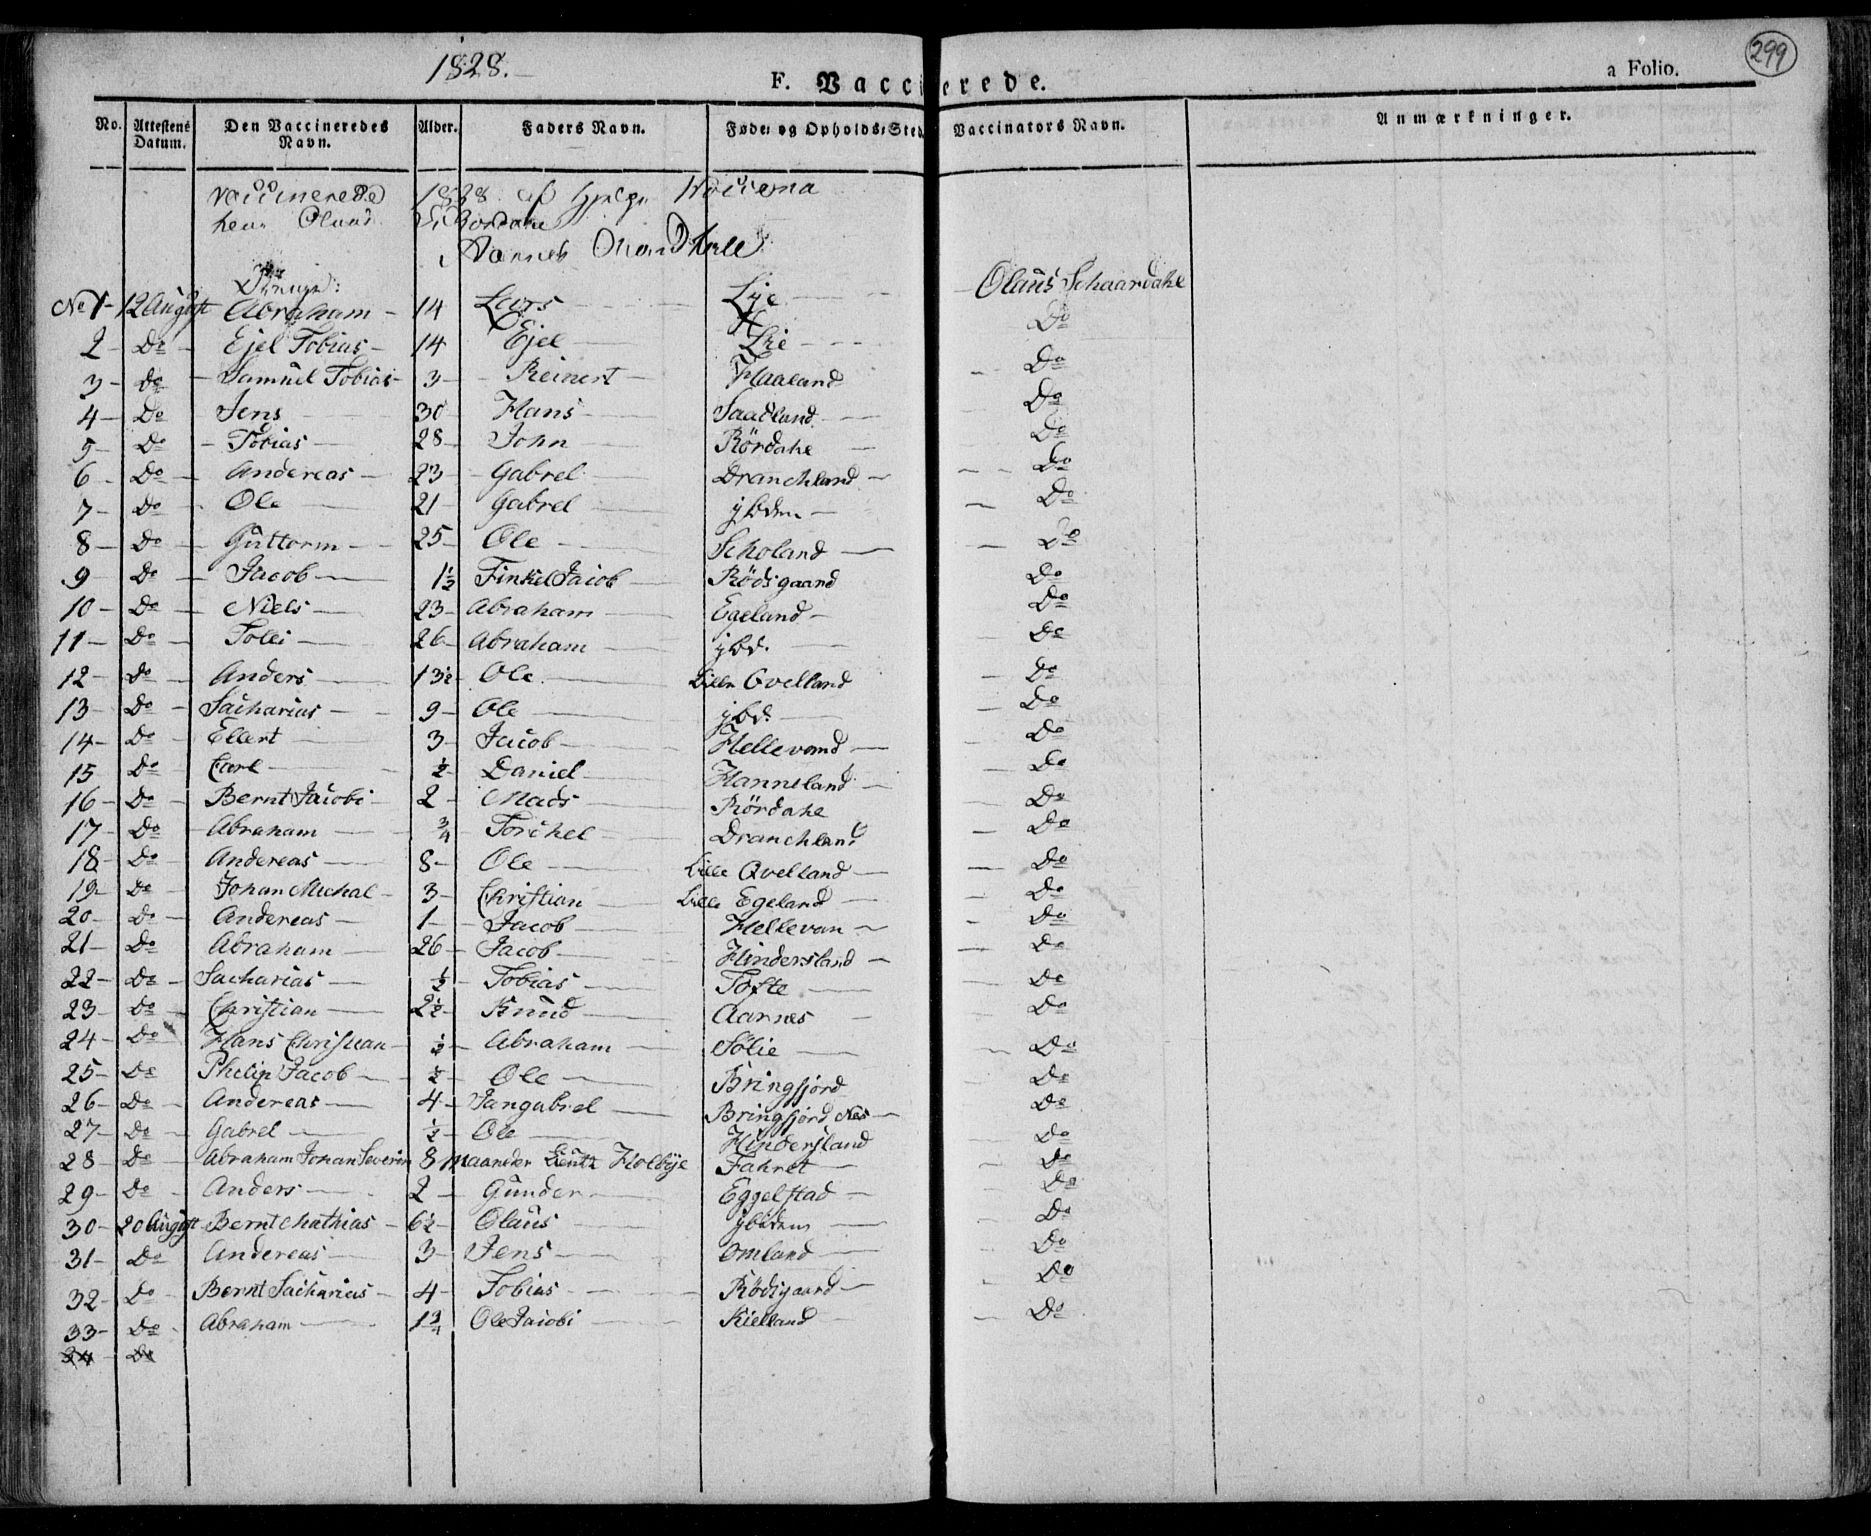 1828.
299
F. Vaccinerede.
a Folio.
No. Attestens Datum. Den Vaccineredes Navn. Alder. Faders Navn. Føde- og Opholds-Sted. Vaccinators Navn. Anmærkninger.
Vaccinerede 1828 af
Olaus
Drenge:
No 1 - 12 August Abraham - 14 Lars Lye Olaus Schaardahl
2 - Do - Ejel Tobias - 14 Ejel Lie Do
3 - Do - Samuel Tobias - 3 - Reinert Haaland Do
4 - Do Jens 30 Hans Saadland Do
5 - Do - Tobias - 28 - John Rørdahe Do
6 - Do - Andereas - 23 - Gabrel Dranchland - Do
7 - Do - Ole 21 Gabrel - Do
8 - Do - Guttorm 25 - Ole Scholand - Do
9 - Do - Jacob 1½ Jacob Rødsgaard Do
10 - Do - Niels 23 - Abraham Egeland - Do
11 - Do - 26 - Abraham jbd. - Do
12 - Do - Anders 13½ - Ole Lille Qvelland - Do
13 - Do - Sacharias 9 - Ole jbd. - Do
14 - Do - Ellert 3 - Jacob Hellevand - Do
15 Do - Carl ½ - Daniel Hanneland - Do
16 - Do - Bernt Jacobi 2 - Mads Rørdahe - Do
17 - Do - Abraham ¾ Torchel Dranchland - Do
18 - Do - Andereas 8 - Ole Lille Qvelland - Do
19 - Do - Johan Michal - 3 - Christian Lille Egeland - Do
20 - Do - Andereas - 1 - Jacob Hellevan - Do
21 - Do Abraham 26 - Jacob Hindersland - Do
22 - Do - Sacharias ½ - Tobias Tofte Do
23 - Do - Christian 2½ - Knud Aarnes - Do
24 - Do - Hans Christian - ½ - Abraham Sølie - Do
25 - Do Philip Jacob ½ - Ole Bringfjord Do
26 - Do - Andereas 4 - Jangabrel Bringfjord Nes - Do
27 - Do - Gabrel ½ - Ole Hindersland - Do
28 - Do - Abraham Johan Severin 8 Maaneder Holbye Fahret - Do
29 - Do - Anders 2 - Gunder Eggelstad - Do
30 - 20 August Bernt Mathias - 6½ - Olaus jbidem - Do
31 - Do Andereas 3 - Jens Omland - Do
32 - Do - Bernt Sacharias - 4 - Tobias Rødsgaard - Do
33 - Do - Abraham 1¾ Ole Jacobi Kielland - Do
34 - Do